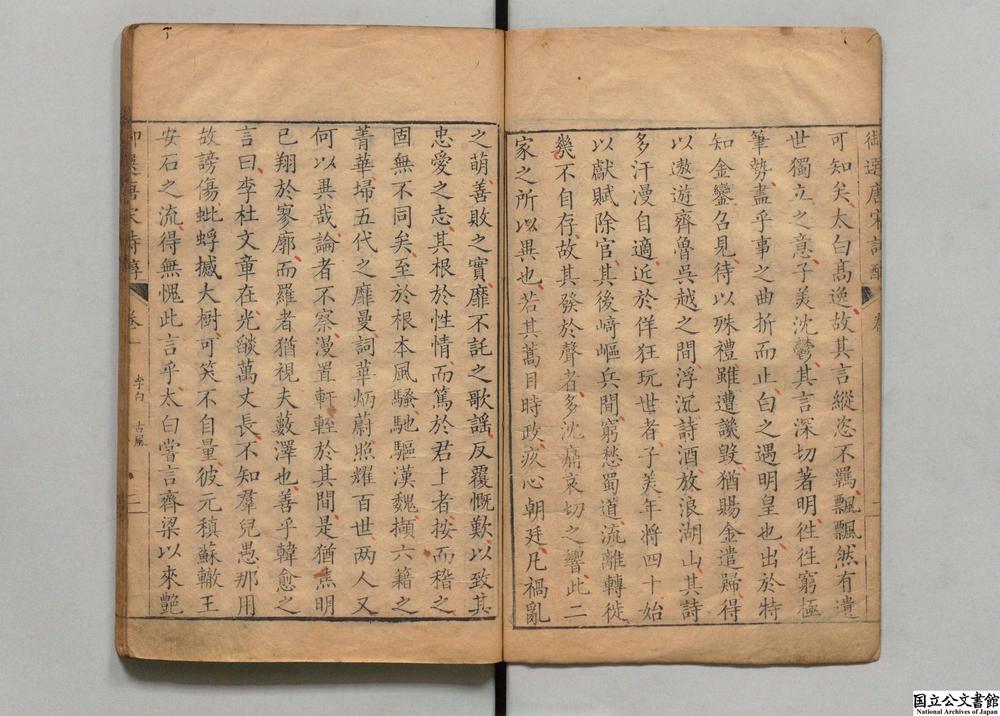 御選唐宋詩醇
卷一
可知矣太白髙逸故其言縱恣不羈飄飄然有遺
世獨立之意子美沈鬱其言深切著明徃徃窮極
筆勢盡乎事之曲折而止白之遇明皇也出於特
知金鑾召見待以殊禮雖遭讒毀猶賜金遣歸得
以遨遊齊魯吳越之間浮沉詩酒放浪湖山其詩
多汗漫自適近於佯狂玩世者子美年將四十始
以獻賦除官其後﨑嶇兵間窮愁蜀道流離轉徙
幾不自存故其發於聲者多沈痛哀切之響此二
家之所以異也若其蒿目時政疚心朝廷凡禍亂
之萌善敗之實靡不託之歌謡反覆慨歎以致其
忠愛之志其根於性情而篤於君上者按而稽之
固無不同矣至於根本風騷馳驅漢魏擷六籍之
菁華埽五代之靡曼詞華炳蔚照耀百世兩人又
何以異哉論者不察漫置軒輊於其間是猶焦明
已翔於寥廓而羅者猶視夫藪澤也善乎韓愈之
言曰李杜文章在光燄萬丈長不知羣兒愚那用
故謗傷蚍蜉撼大樹可笑不自量彼元稹蘇轍王
安石之流得無愧此言乎太白嘗言齊梁以來艶
御選唐宋詩醇
卷一
李白
古風
二
国立公文書館
National Archives of Japan